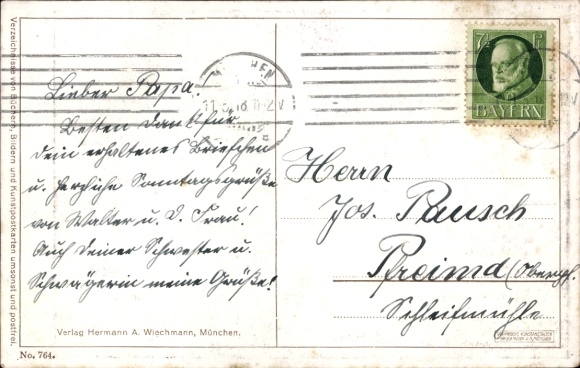 Verzeichnisse von Büchern, Bildern und Kunstpostkarten umsonst und postfrei.
Lieber Papa!
Besten Dank für
dein erhaltenes Briefchen
u. herzliche Sonntagsgrüße
von Walter u. d. Frau!
Auch deiner Schwester u.
Schwägerin meine Grüße!
Verlag Hermann A. Wiechmann, München.
No. 764.
MÜNCHEN
7½ Pf
BAYERN
Herrn
Jos. Rausch
Pfreimd (Oberpf.
Schleifmühle